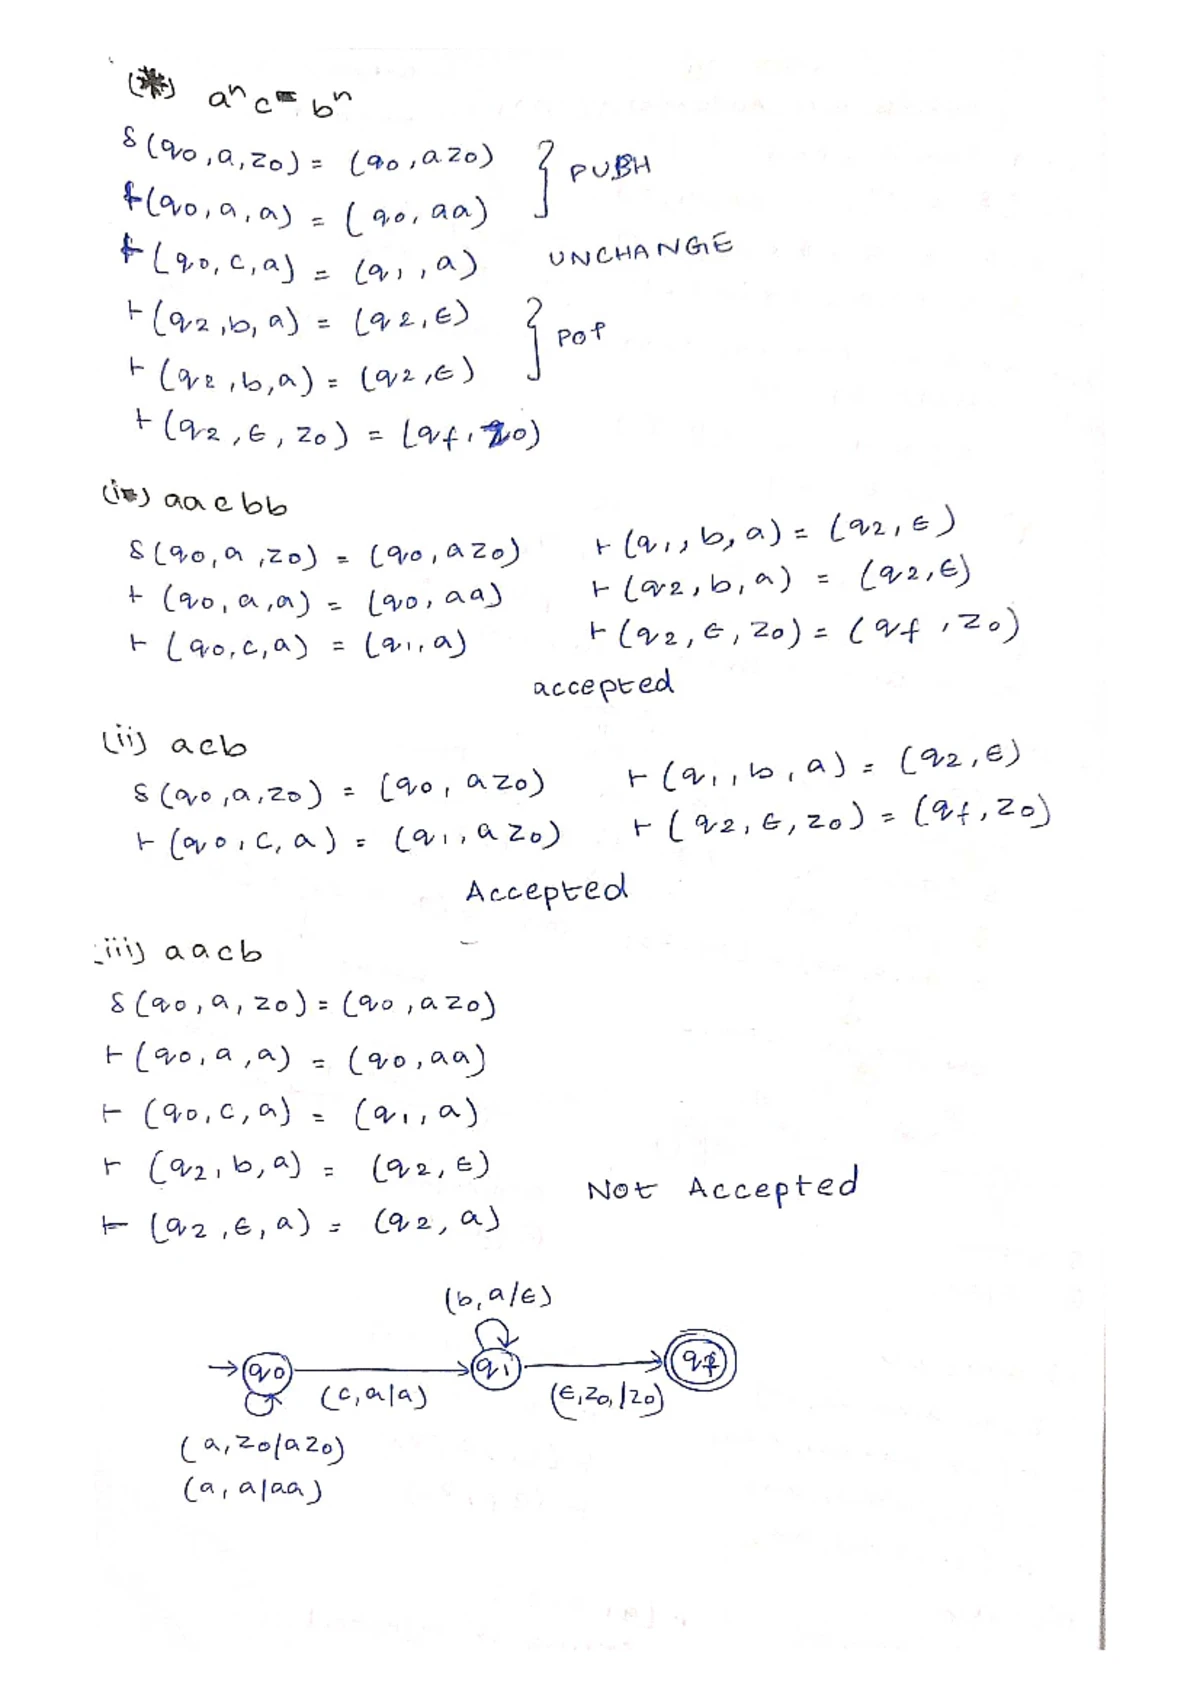 (*) aⁿ c bⁿ
δ(q0, a, z0) = (q0, a z0) } PUSH
⊢(q0, a, a) = (q0, aa)
⊢(q0, c, a) = (q1, a) UNCHANGE
⊢(q2, b, a) = (q2, ε) } POP
⊢(q2, b, a) = (q2, ε)
⊢(q2, ε, z0) = (qf, z0)
(i) aacbb
δ(q0, a, z0) = (q0, a z0) ⊢(q1, b, a) = (q2, ε)
⊢(q0, a, a) = (q0, aa) ⊢(q2, b, a) = (q2, ε)
⊢(q0, c, a) = (q1, a) ⊢(q2, ε, z0) = (qf, z0)
accepted
(ii) acb
δ(q0, a, z0) = (q0, a z0) ⊢(q1, b, a) = (q2, ε)
⊢(q0, c, a) = (q1, a z0) ⊢(q2, ε, z0) = (qf, z0)
Accepted
iii) aacb
δ(q0, a, z0) = (q0, a z0)
⊢(q0, a, a) = (q0, aa)
⊢(q0, c, a) = (q1, a)
⊢(q2, b, a) = (q2, ε) Not Accepted
⊢(q2, ε, a) = (q2, a)
(b, a/ε)
q0 q1 qf
(c, a/a) (ε, z0, /z0)
(a, z0/a z0)
(a, a/aa)